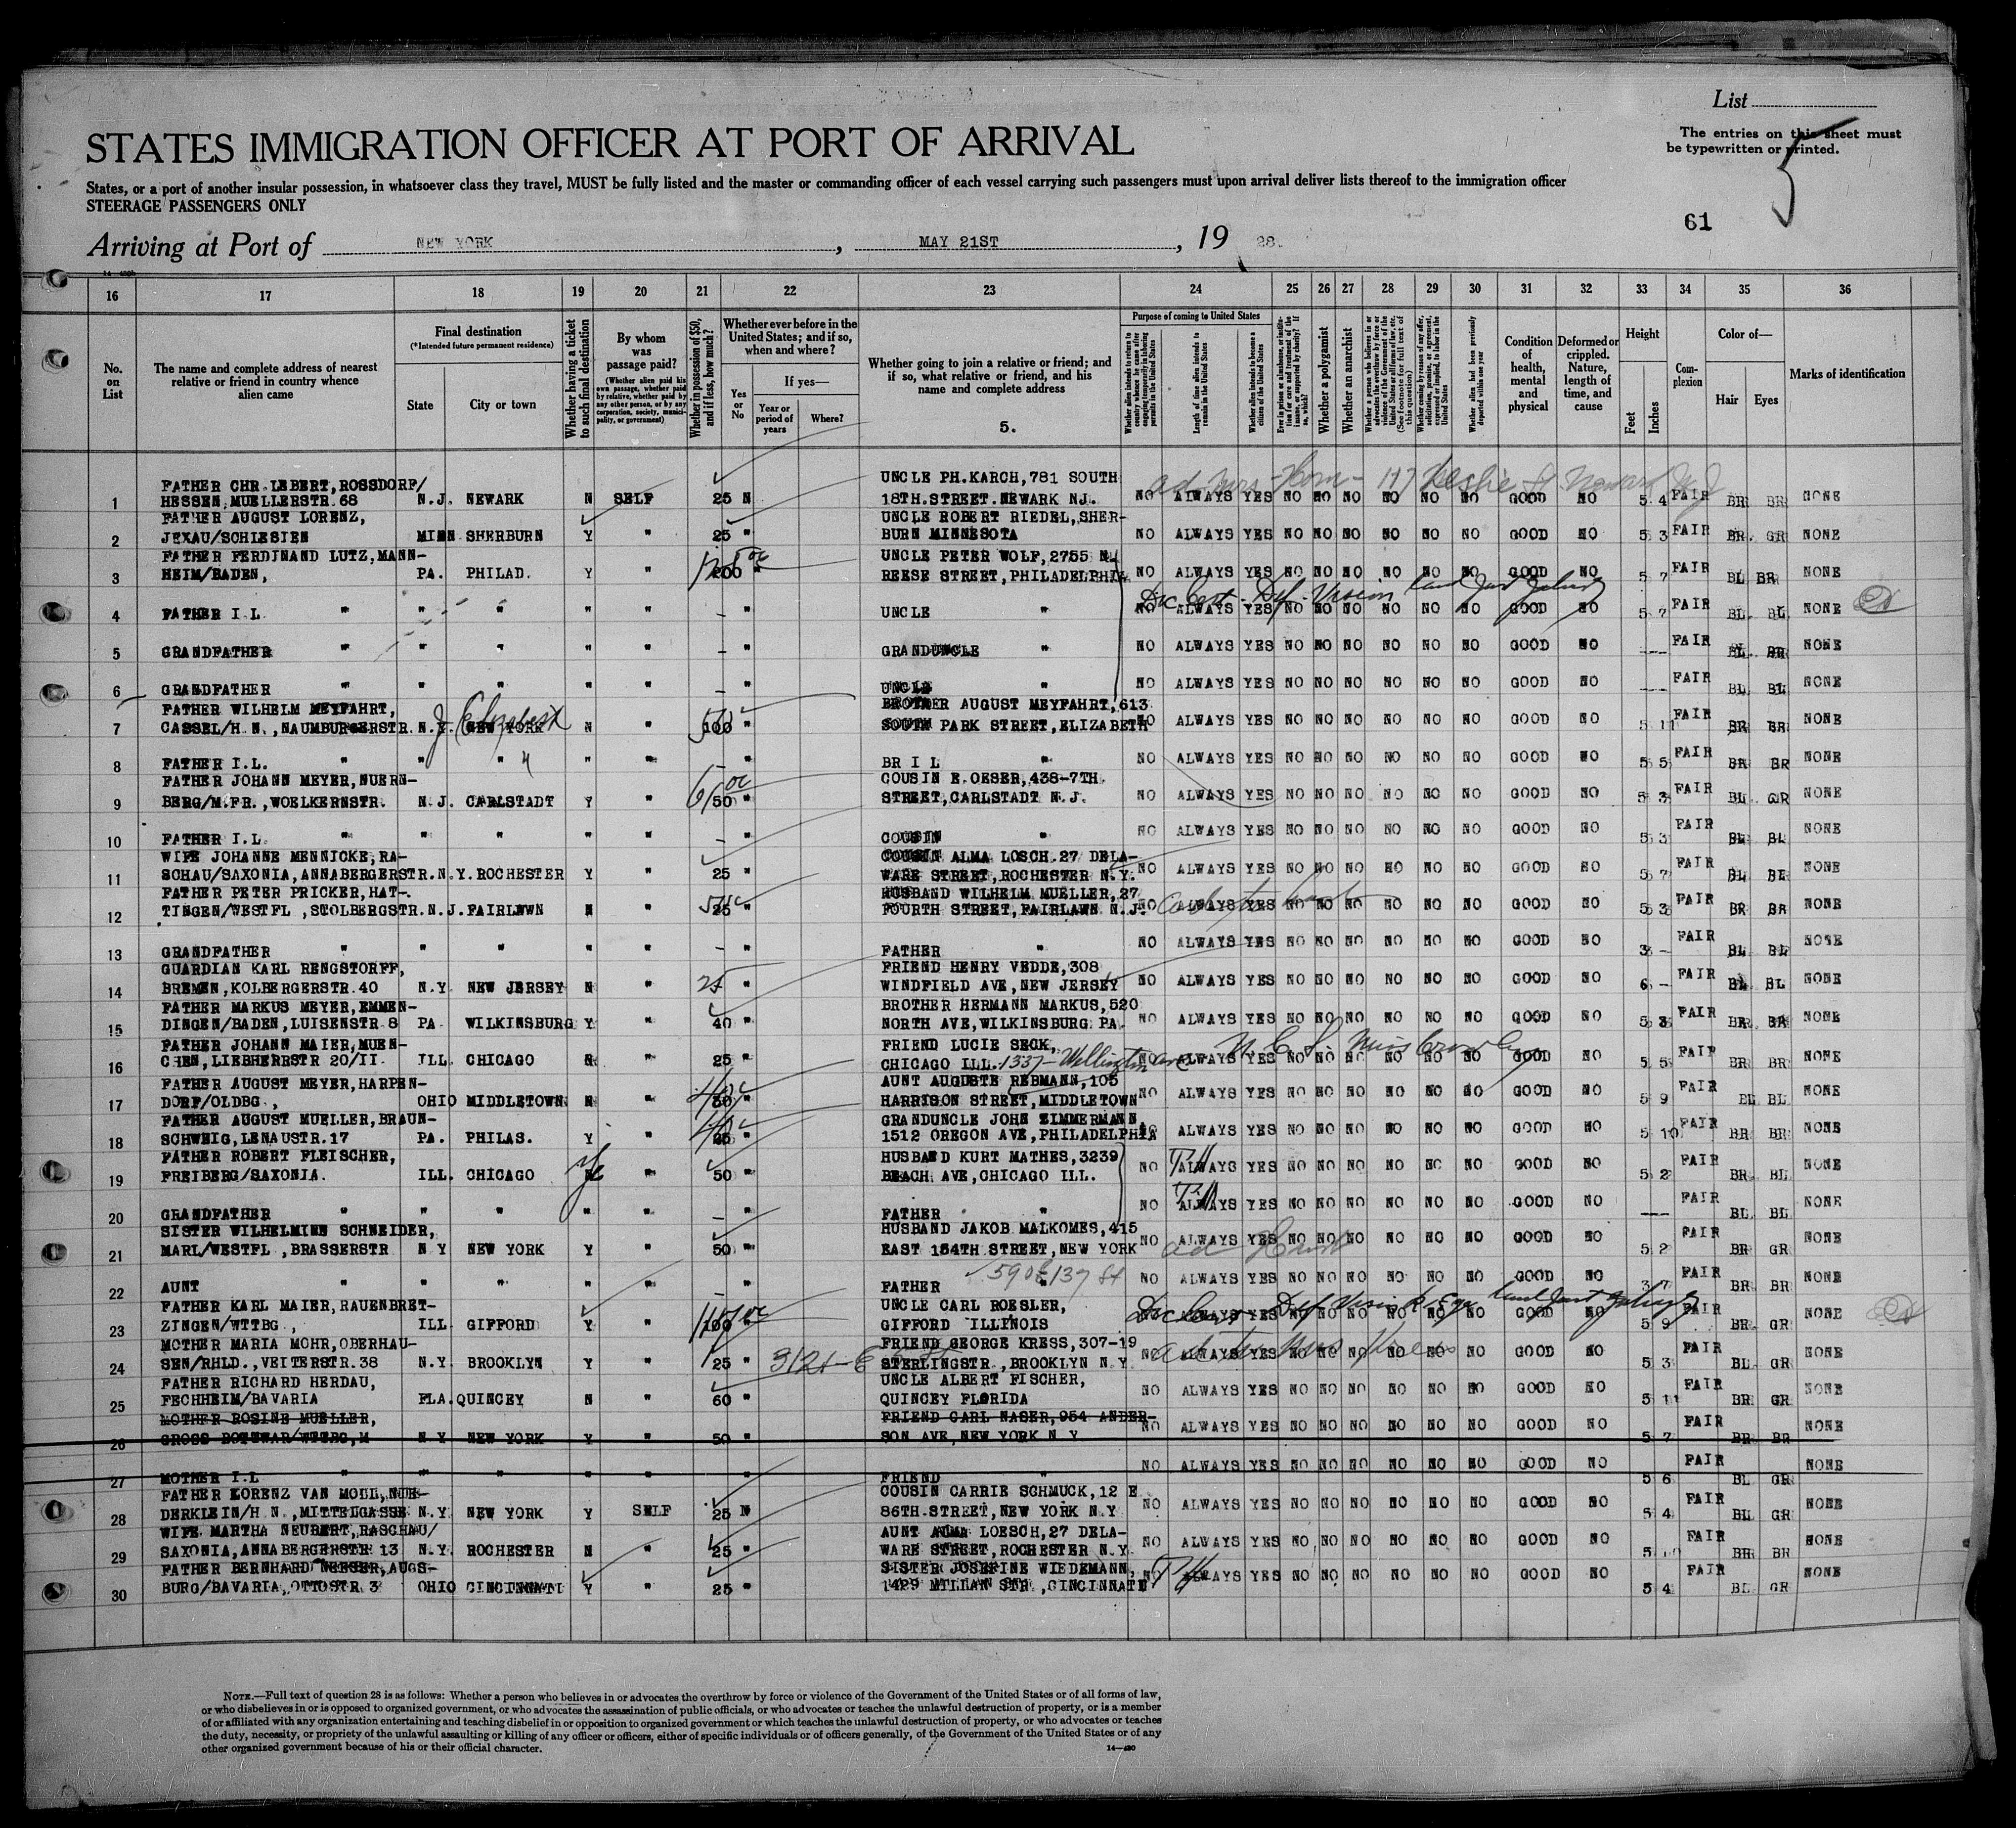 List
STATES IMMIGRATION OFFICER AT PORT OF ARRIVAL
The entries on this sheet must
be typewritten or printed.
States, or a port of another insular possession, in whatsoever class they travel, MUST be fully listed and the master or commanding officer of each vessel carrying such passengers must upon arrival deliver lists thereof to the immigration officer
STEERAGE PASSENGERS ONLY
5
61
Arriving at Port of NEW YORK, MAY 21ST, 19 28.
16 17 18 19 20 21 22 23 24 25 26 27 28 29 30 31 32 33 34 35 36
No. on List
The name and complete address of nearest relative or friend in country whence alien came
Final destination
(*Intended future permanent residence)
State
City or town
Whether having a ticket to such final destination
By whom was passage paid?
(Whether alien paid his own passage, whether paid by relative, whether paid by any other person, or by any corporation, society, municipality, or government)
Whether in possession of $50, and if less, how much?
Whether ever before in the United States; and if so, when and where?
Yes or No
If yes—
Year or period of years
Where?
Whether going to join a relative or friend; and if so, what relative or friend, and his name and complete address
5.
Purpose of coming to United States
Length of time alien intends to remain in the United States
Whether alien intends to become a citizen of the United States
Whether a polygamist
Whether an anarchist
Condition of health, mental and physical
Deformed or crippled. Nature, length of time, and cause
Height
Feet
Inches
Complexion
Color of—
Hair
Eyes
Marks of identification
1 FATHER CHR.LEBERT,ROSSDORF/ UNCLE PH.KARCH,781 SOUTH
HESSEN,MUELLERSTR.68 N.J. NEWARK N SELF 25 N 18TH.STREET.NEWARK NJ. NO ALWAYS YES NO NO NO NO NO NO GOOD NO 5 4 FAIR BR BR NONE
2 FATHER AUGUST LORENZ, UNCLE ROBERT RIEDEL,SHER-
JEXAU/SCHLESIEN MINN SHERBURN Y " 25 " BURN MINNESOTA NO ALWAYS YES NO NO NO NO NO NO GOOD NO 5 3 FAIR BR. GR NONE
3 FATHER FERDINAND LUTZ,MANN- UNCLE PETER WOLF,2755 N.
HEIM/BADEN, PA. PHILAD. Y " 200 " REESE STREET,PHILADELPHIA NO ALWAYS YES NO NO NO NO NO NO GOOD NO 5 7 FAIR BL BR NONE
4 FATHER I.L. " " " " " UNCLE " NO ALWAYS YES NO NO NO NO NO NO GOOD NO 5 7 FAIR BL. BL NONE
5 GRANDFATHER " " " " " - " GRANDUNCLE " NO ALWAYS YES NO NO NO NO NO NO GOOD NO --- FAIR BL. BR NONE
6 GRANDFATHER " " " " " - " UNCLE " NO ALWAYS YES NO NO NO NO NO NO GOOD NO --- FAIR BL BL NONE
7 FATHER WILHELM MEYFAHRT, BROTHER AUGUST MEYFAHRT,613
CASSEL/H.N.,NAUMBURGERSTR. N.Y. NEW YORK N " 100 " SOUTH PARK STREET,ELIZABETH NO ALWAYS YES NO NO NO NO NO NO GOOD NO 5 11 FAIR BR BR NONE
8 FATHER I.L. " " " " " - " BR I L " NO ALWAYS YES NO NO NO NO NO NO GOOD NO 5 5 FAIR BR BR NONE
9 FATHER JOHANN MEYER,NUERN- COUSIN E.OESER,438-7TH.
BERG/M.FR.,WOELKERNSTR. N.J. CARLSTADT Y " 50 " STREET,CARLSTADT N.J. NO ALWAYS YES NO NO NO NO NO NO GOOD NO 5 3 FAIR BL GR NONE
10 FATHER I.L. " " " " " - " COUSIN " NO ALWAYS YES NO NO NO NO NO NO GOOD NO 5 3 FAIR BL BL NONE
11 WIFE JOHANNE MENNICKE,RA- COUSIN ALMA LOSCH.27 DELA-
SCHAU/SAXONIA,ANNABERGERSTR.N.Y.ROCHESTER Y " 25 " WARE STREET,ROCHESTER N.Y. NO ALWAYS YES NO NO NO NO NO NO GOOD NO 5 7 FAIR BL BL NONE
12 FATHER PETER PRICKER,HAT- HUSBAND WILHELM MUELLER,27
TINGEN/WESTFL ,STOLBERGSTR.N.J.FAIRLAWN N " 25 " FOURTH STREET,FAIRLAWN N.J. NO ALWAYS YES NO NO NO NO NO NO GOOD NO 5 3 FAIR BR BR NONE
13 GRANDFATHER " " " " " - " FATHER " NO ALWAYS YES NO NO NO NO NO NO GOOD NO 3 - FAIR BL BL NONE
14 GUARDIAN KARL RENGSTORFF, FRIEND HENRY VEDDE,308
BREMEN,KOLBERGERSTR.40 N.Y NEW JERSEY N " 25 " WINDFIELD AVE,NEW JERSEY NO ALWAYS YES NO NO NO NO NO NO GOOD NO 6 - FAIR BL BL NONE
15 FATHER MARKUS MEYER,EMMEN- BROTHER HERMANN MARKUS,520
DINGEN/BADEN,LUISENSTR 8 PA. WILKINSBURG Y " 40 " NORTH AVE,WILKINSBURG PA. NO ALWAYS YES NO NO NO NO NO NO GOOD NO 5 3 FAIR BR. BR NONE
16 FATHER JOHANN MAIER,MUEN- FRIEND LUCIE SECK,
CHEN,LIEBHERRSTR 20/II. ILL. CHICAGO N " 25 " CHICAGO ILL. 1337 Wellington ave NO ALWAYS YES NO NO NO NO NO NO GOOD NO 5 5 FAIR BR BR NONE
17 FATHER AUGUST MEYER,HARPEN- AUNT AUGUSTE REBMANN,105
DORF/OLDBG., OHIO MIDDLETOWN N " 30 " HARRISON STREET,MIDDLETOWN NO ALWAYS YES NO NO NO NO NO NO GOOD NO 5 9 FAIR BL BL NONE
18 FATHER AUGUST MUELLER,BRAUN- GRANDUNCLE JOHN ZIMMERMANN
SCHWEIG,LENAUSTR.17 PA. PHILAS. Y " 25 " 1512 OREGON AVE,PHILADELPHIA NO ALWAYS YES NO NO NO NO NO NO GOOD NO 5 10 FAIR BR BR NONE
19 FATHER ROBERT FLEISCHER, HUSBAND KURT MATHES,3239
FREIBERG/SAXONIA. ILL. CHICAGO " 50 " BEACH AVE,CHICAGO ILL. NO ALWAYS YES NO NO NO NO NO NO GOOD NO 5 2 FAIR BR BL NONE
20 GRANDFATHER " " " " - " FATHER " NO ALWAYS YES NO NO NO NO NO NO GOOD NO --- FAIR BL BL NONE
21 SISTER WILHELMINE SCHNEIDER, HUSBAND JAKOB MALKOMES,415
MARL/WESTFL ,BRASSERSTR N Y NEW YORK Y " 50 " EAST 154TH STREET,NEW YORK NO ALWAYS YES NO NO NO NO NO NO GOOD NO 5 2 FAIR BR GR NONE
22 AUNT " " " " " - " FATHER " NO ALWAYS YES NO NO NO NO NO NO GOOD NO 3 7 FAIR BR BR NONE
23 FATHER KARL MAIER,RAUENBRET- UNCLE CARL ROESLER,
ZINGEN/WTTBG , ILL GIFFORD Y " 100 " GIFFORD ILLINOIS NO ALWAYS YES NO NO NO NO NO NO GOOD NO 5 9 FAIR BR. GR NONE
24 MOTHER MARIA MOHR,OBERHAU- FRIEND GEORGE KRESS,307-19
SEN/RHLD.,VEITERSTR.38 N.Y. BROOKLYN Y " 25 " STERLINGSTR.,BROOKLYN N Y NO ALWAYS YES NO NO NO NO NO NO GOOD NO 5 3 FAIR BL GR NONE
25 FATHER RICHARD HERDAU, UNCLE ALBERT FISCHER,
FECHHEIM/BAVARIA FLA.QUINCEY N " 60 " QUINCEY FLORIDA NO ALWAYS YES NO NO NO NO NO NO GOOD NO 5 11 FAIR BR GR NONE
26 MOTHER ROSINE MUELLER, FRIEND CARL NASER,954 ANDER-
GROSS BOTTWAR/WTTBG,M N.Y NEW YORK Y " 50 " SON AVE,NEW YORK N Y NO ALWAYS YES NO NO NO NO NO NO GOOD NO 5 7 FAIR BR BR NONE
27 MOTHER I.L " " " " " " FRIEND " NO ALWAYS YES NO NO NO NO NO NO GOOD NO 5 6 FAIR BL GR NONE
28 FATHER LORENZ VAN MOLL,NIE- COUSIN CARRIE SCHMUCK,12 E
DERKLEIN/H N ,MITTELGASSE N.Y. NEW YORK Y SELF 25 N 86TH.STREET,NEW YORK N.Y NO ALWAYS YES NO NO NO NO NO NO GOOD NO 5 4 FAIR BL GR NONE
29 WIFE MARTHA NEUBERT,RASCHAU/ AUNT ALMA LOESCH,27 DELA-
SAXONIA,ANNABERGERSTR 13 N.Y. ROCHESTER N " 25 " WARE STREET,ROCHESTER N.Y. NO ALWAYS YES NO NO NO NO NO NO GOOD NO 5 10 FAIR BR BR NONE
30 FATHER BERNHARD AUGS- SISTER JOSEFINE WIEDEMANN,
BURG/BAVARIA,OTTOSTR 3 OHIO CINCINNATI Y " 25 " 1429 STR.,CINCINNATI ALWAYS YES NO NO NO NO NO NO GOOD NO 5 4 FAIR BL GR NONE
NOTE.—Full text of question 28 is as follows: Whether a person who believes in or advocates the overthrow by force or violence of the Government of the United States or of all forms of law,
or who disbelieves in or is opposed to organized government, or who advocates the assassination of public officials, or who advocates or teaches the unlawful destruction of property, or is a member
of or affiliated with any organization entertaining and teaching disbelief in or opposition to organized government or which teaches the unlawful destruction of property, or who advocates or teaches
the duty, necessity, or propriety of the unlawful assaulting or killing of any officer or officers, either of specific individuals or of officers generally, of the Government of the United States or of any
other organized government because of his or their official character.
14—430